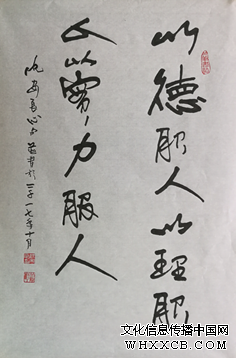 以德服人以理服
人以實力服人
一七年十月
文化信息传播中国网
WHXXCB.CN